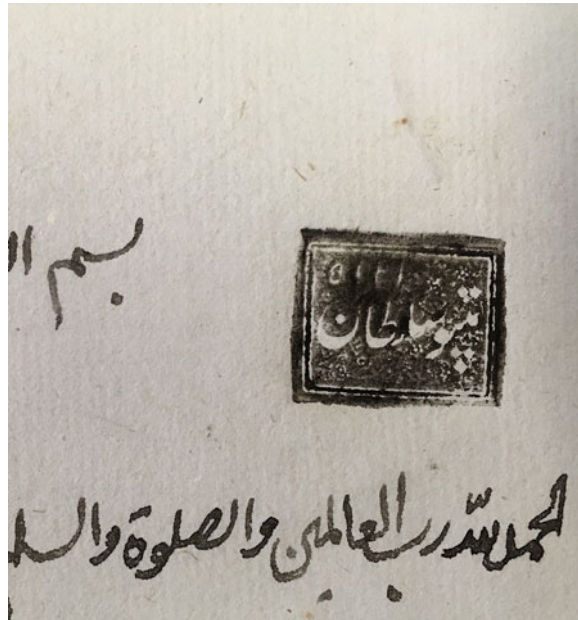 بسم ا
تیپو سلطان
الحمد لله رب العالمین والصلوة والسلا